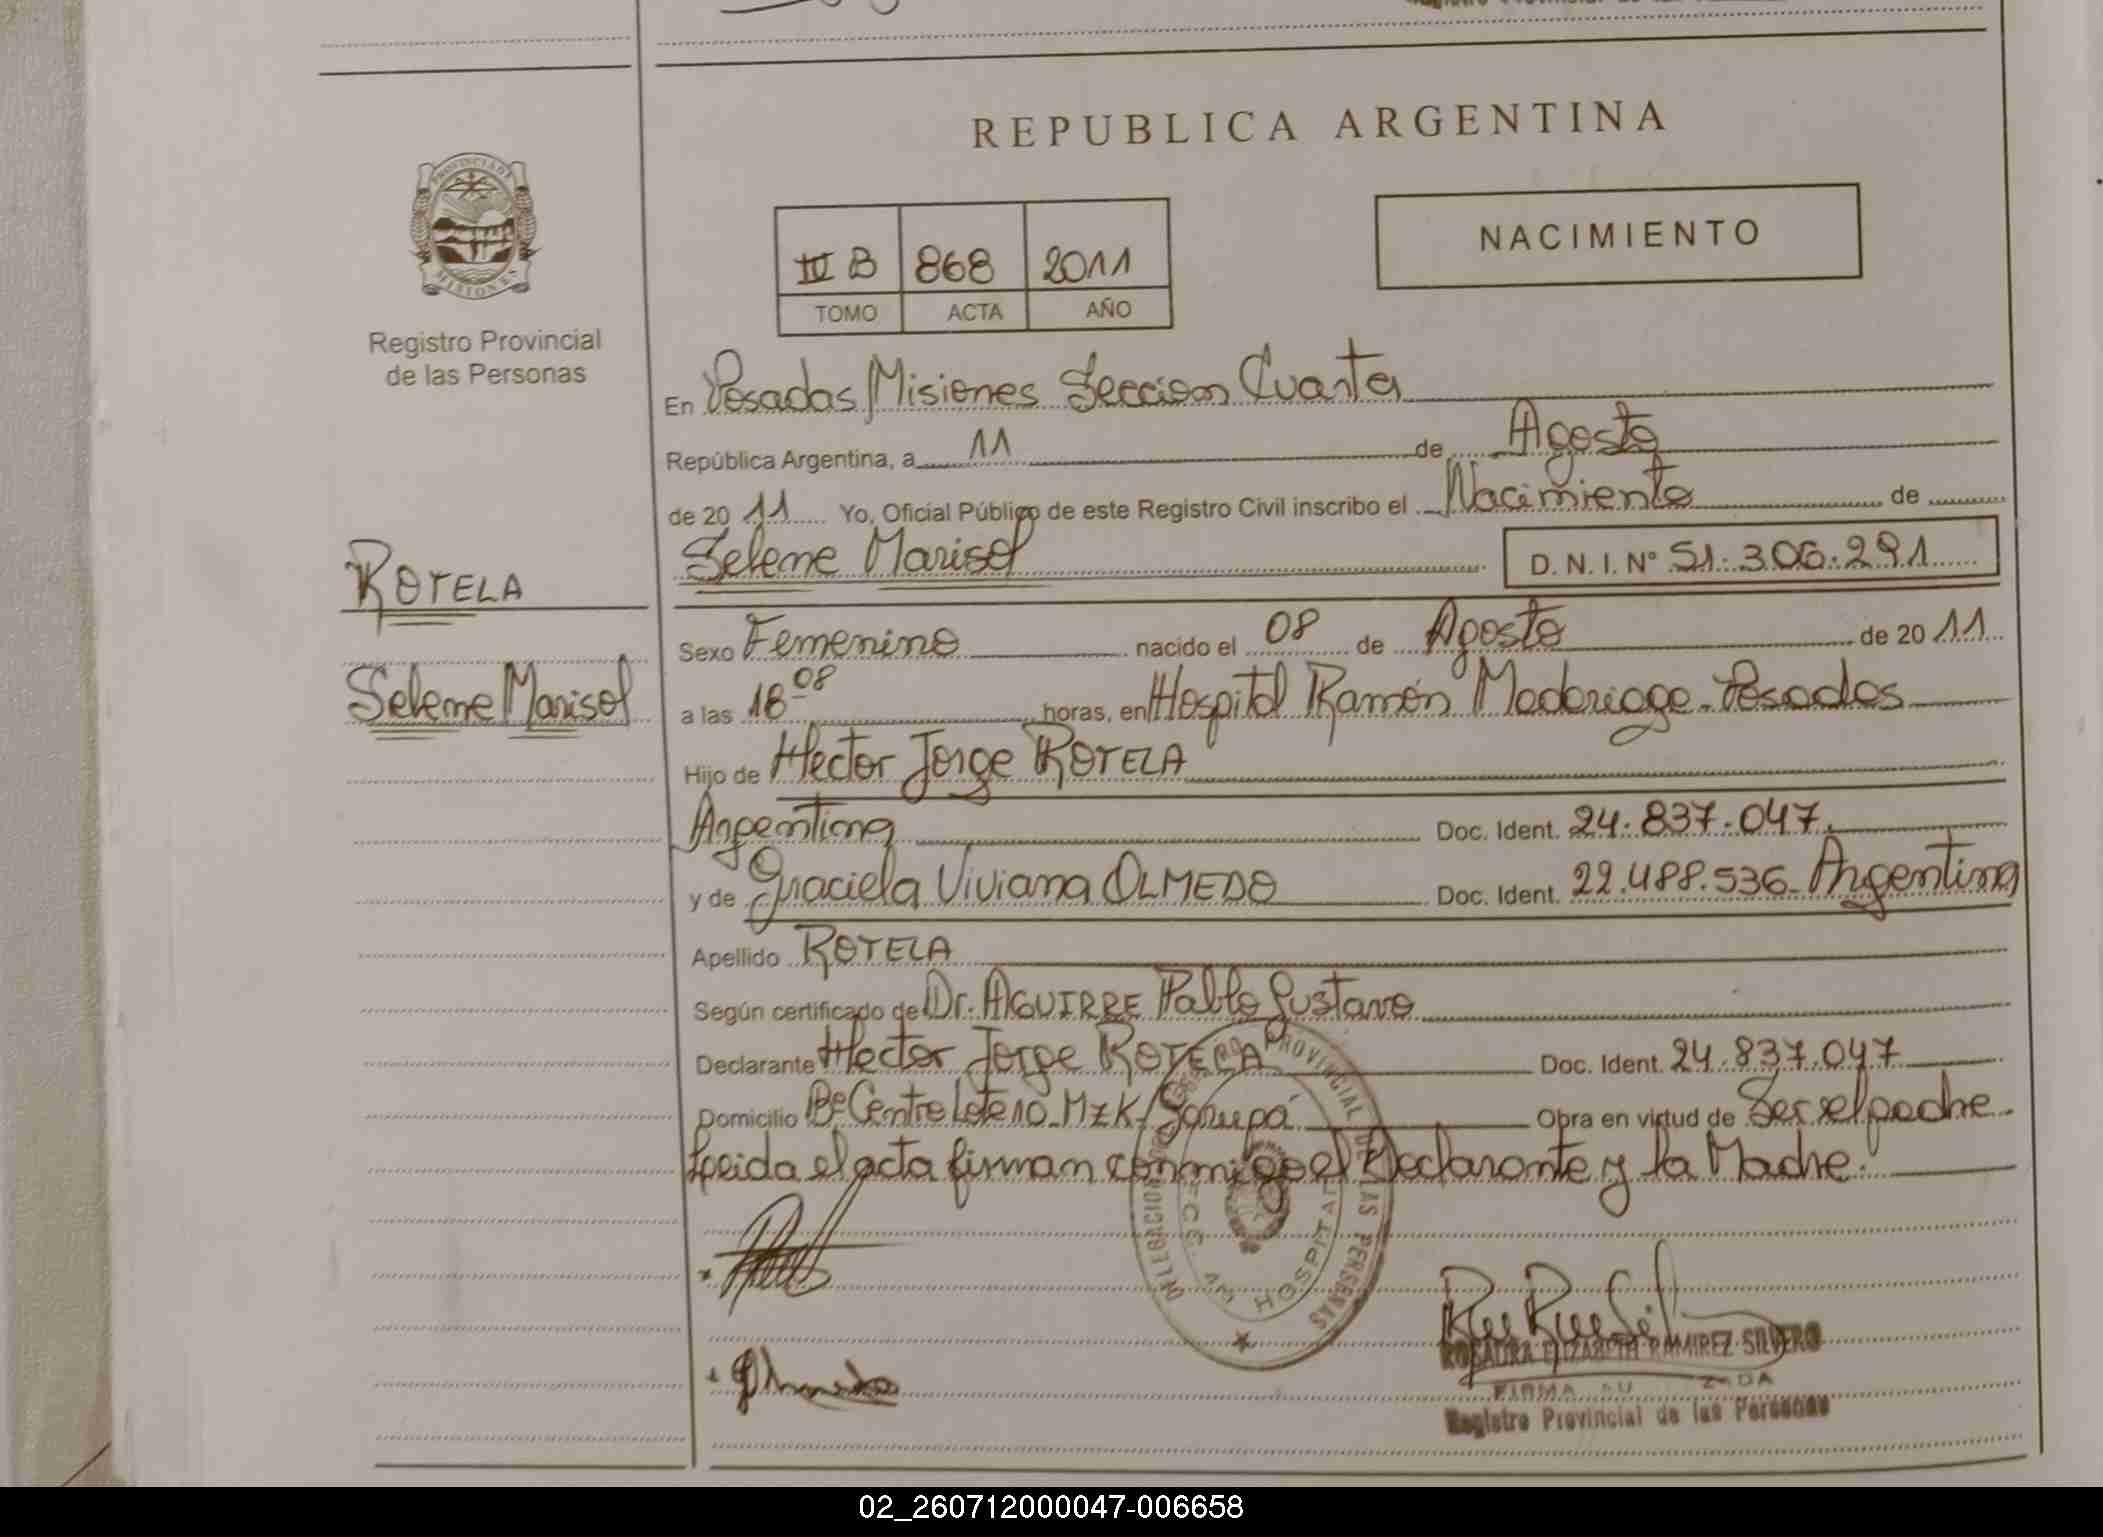 REPUBLICA ARGENTINA
PROVINCIA DE MISIONES
Registro Provincial
de las Personas
NACIMIENTO
III B 868 2011
TOMO ACTA AÑO
En Posadas Misiones Seccion Cuarta
República Argentina, a 11 de Agosto
de 20 11 Yo, Oficial Público de este Registro Civil inscribo el Nacimiento de
Selene Marisol D.N.I. Nº 51.306.291
ROTELA
Selene Marisol
Sexo Femenino nacido el 08 de Agosto de 20 11
a las 18 08 horas, en Hospital Ramón Madariaga - Posadas
Hijo de Hector Jorge ROTELA
Argentina Doc. Ident. 24.837.047
y de Graciela Viviana OLMEDO Doc. Ident. 22.488.536 - Argentina
Apellido ROTELA
Según certificado de Dr. AGUIRRE Pablo Gustavo
Declarante Hector Jorge ROTELA Doc. Ident. 24.837.047
Domicilio Bº Centro Lote 10 - Mz K / Garupá Obra en virtud de Ser el padre.
Leida el acta firman conmigo el Declarante y la Madre.
REGISTRO PROVINCIAL DE LAS PERSONAS
DELEGACION
HOSPITAL
ROSAURA ELIZABETH RAMIREZ SILVERO
FIRMA AUTORIZADA
Registro Provincial de las Personas
02_260712000047-006658